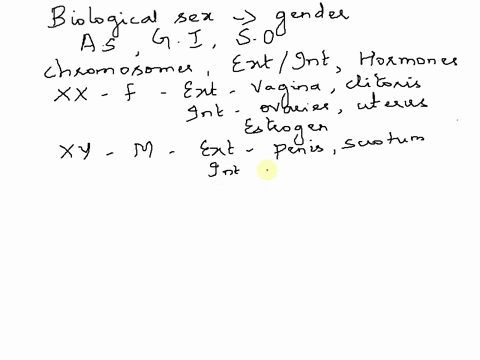 Biological sex -> gender
AS, G.I, S.O
chromosomes, Ext/Int, Hormones
XX - F - Ext - Vagina, clitoris
Int - ovaries, uterus
Estrogen
XY - M - Ext - penis, scrotum
Int